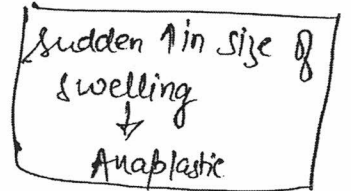 Sudden ↑ in size of
swelling
↓
Anaplastic